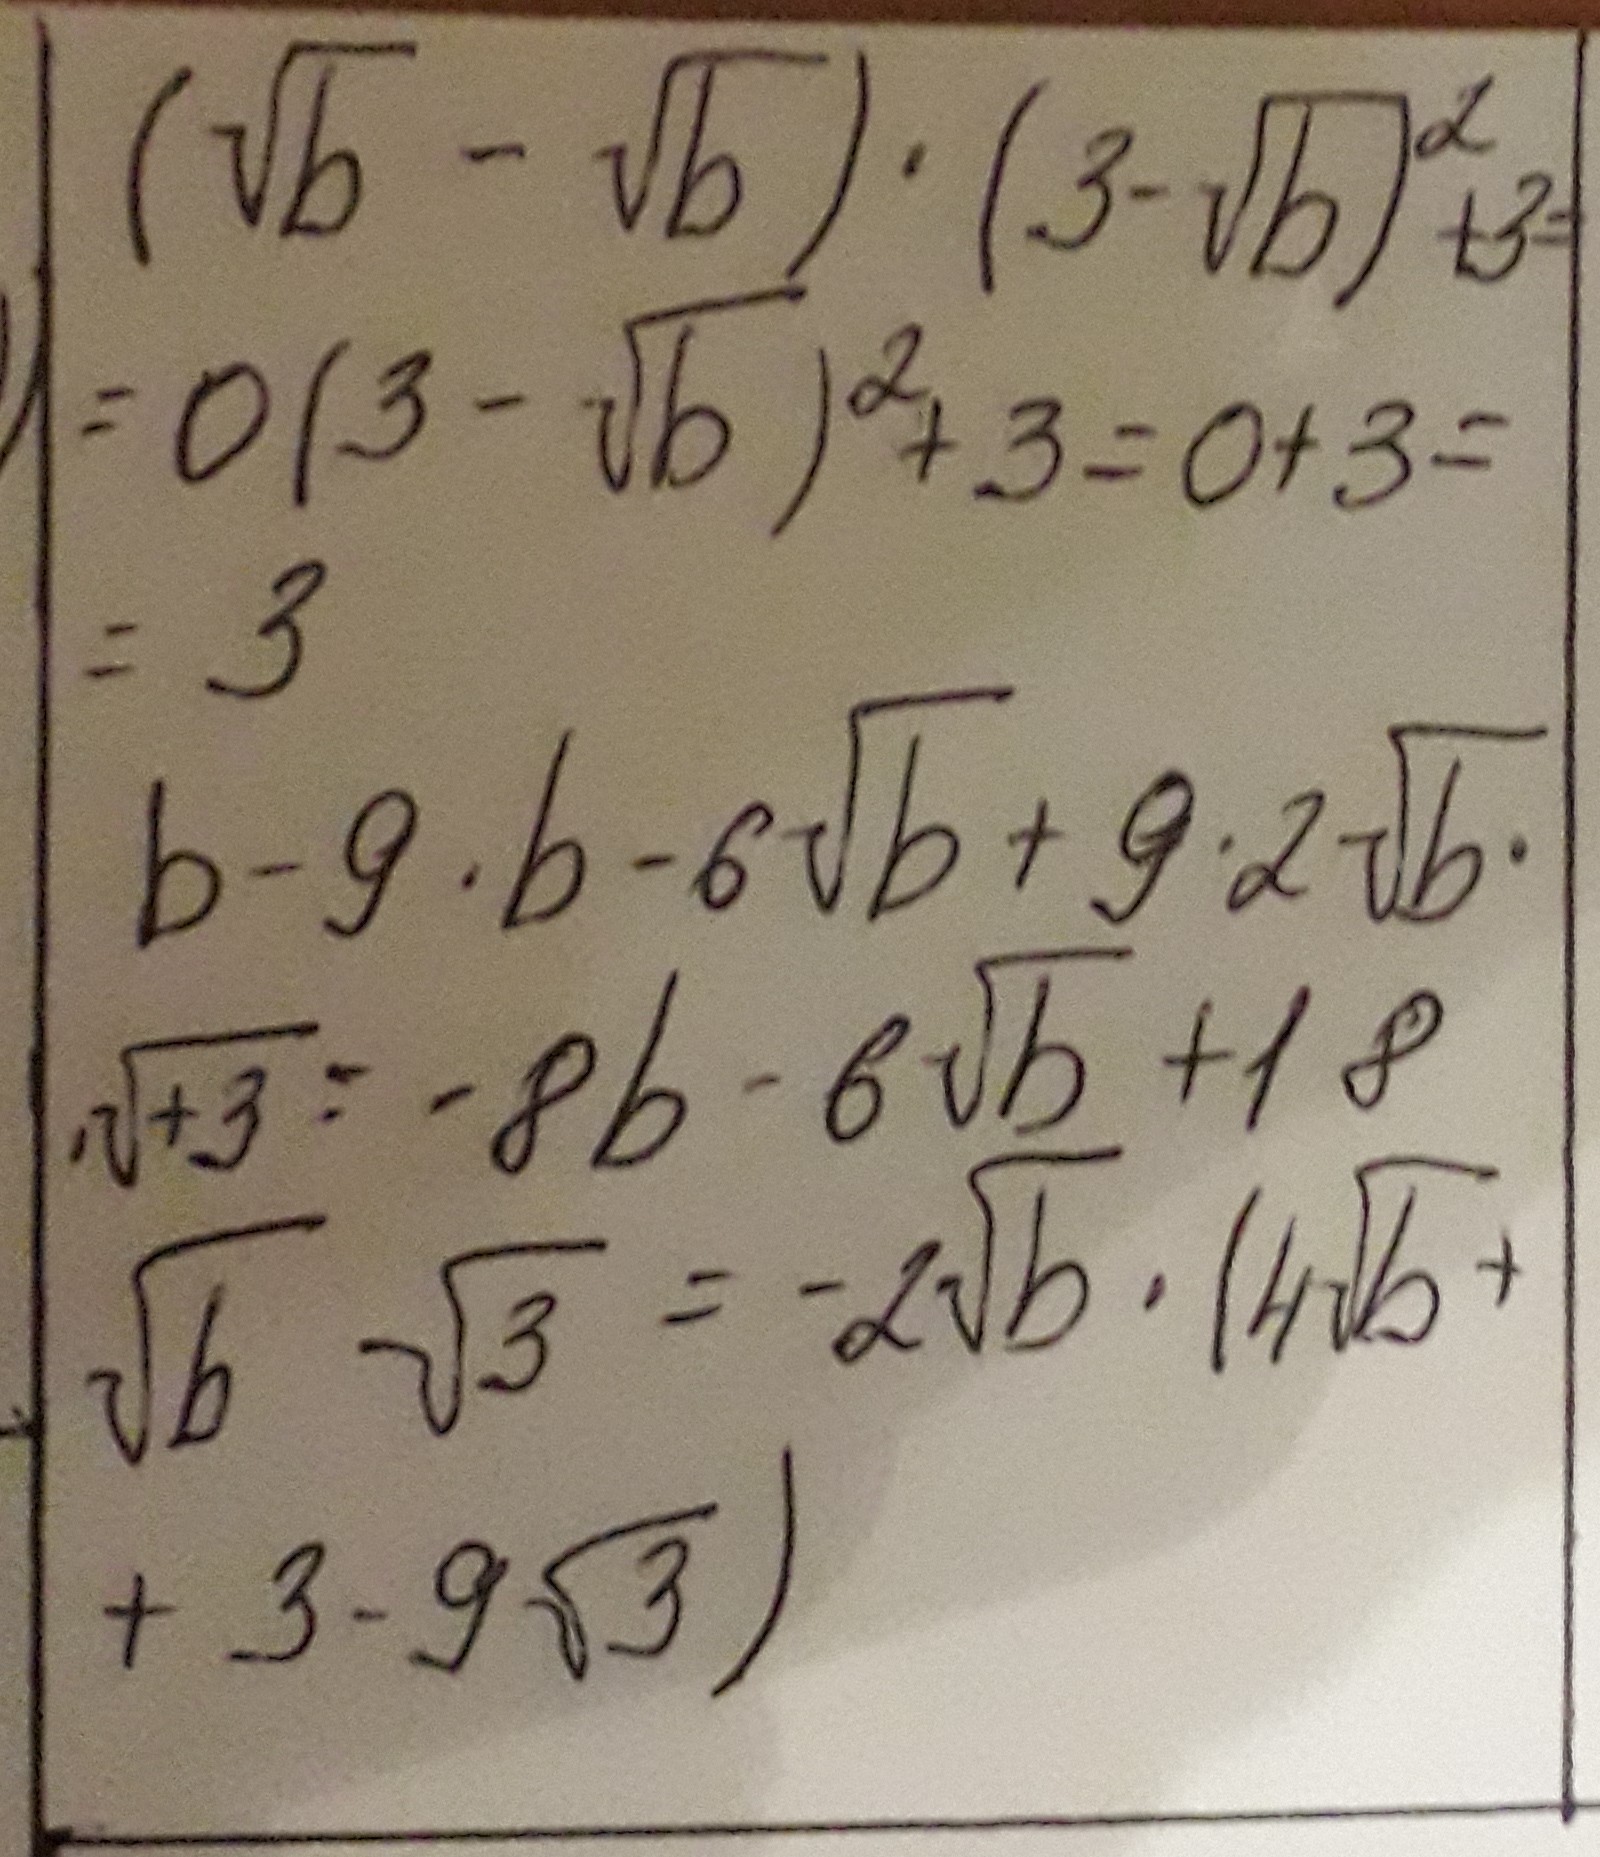 (√b - √b) · (3 - √b)² + 3 =
= 0(3 - √b)² + 3 = 0 + 3 =
= 3
b - 9 · b - 6√b + 9 · 2√b ·
· √+3 = - 8b - 6√b + 18
√b √3 = - 2√b · (4√b +
+ 3 - 9√3)